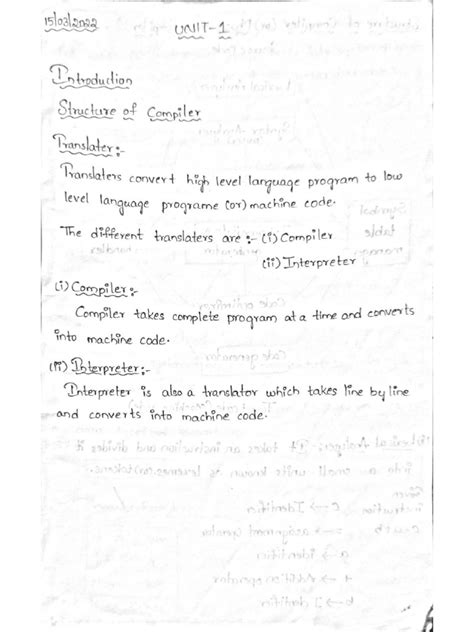 15/03/2022
UNIT-1
Introduction
Structure of Compiler
Translater:-
Translaters convert high level language program to low
level language programe (or) machine code.
The different translaters are :- (i) Compiler
(ii) Interpreter
(i) Compiler:-
Compiler takes complete program at a time and converts
into machine code.
(ii) Interpreter:-
Interpreter is also a translator which takes line by line
and converts into machine code.